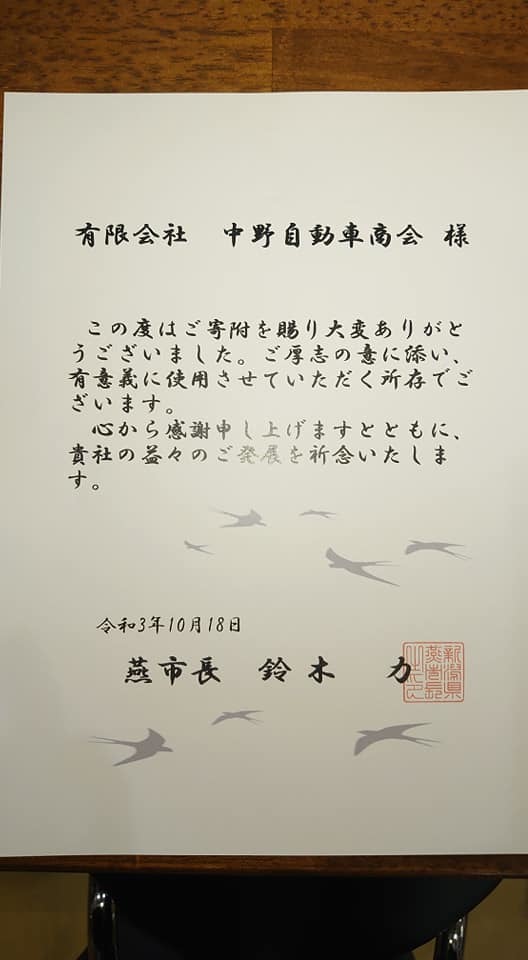 有限会社　中野自動車商会　様
この度はご寄附を賜り大変ありがと
うございました。ご厚志の意に添い、
有意義に使用させていただく所存でご
ざいます。
心から感謝申し上げますとともに、
貴社の益々のご発展を祈念いたしま
す。
令和3年10月18日
燕市長　鈴木　力
新潟県
燕市長
之印